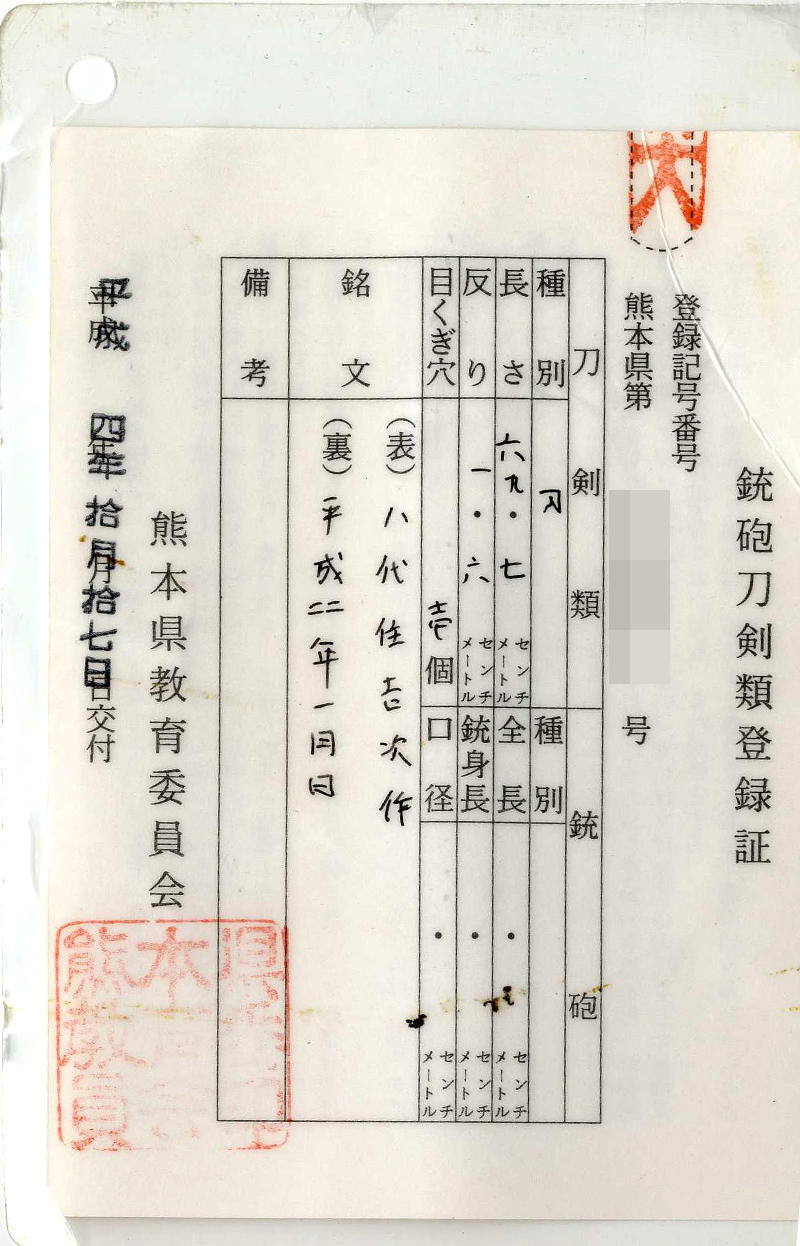 銃砲刀剣類登録証
登録記号番号
熊本県第 号
刀剣類 銃砲
種別 刀 種別
長さ 六九・七 センチメートル 全長 ・ センチメートル
反り 一・六 センチメートル 銃身長 ・ センチメートル
目くぎ穴 壱個 口径 ・ センチメートル
銘文 (表) 八代住吉次作
(裏) 平成二年一月日
備考
熊本県教育委員会
平成四年拾月拾七日交付